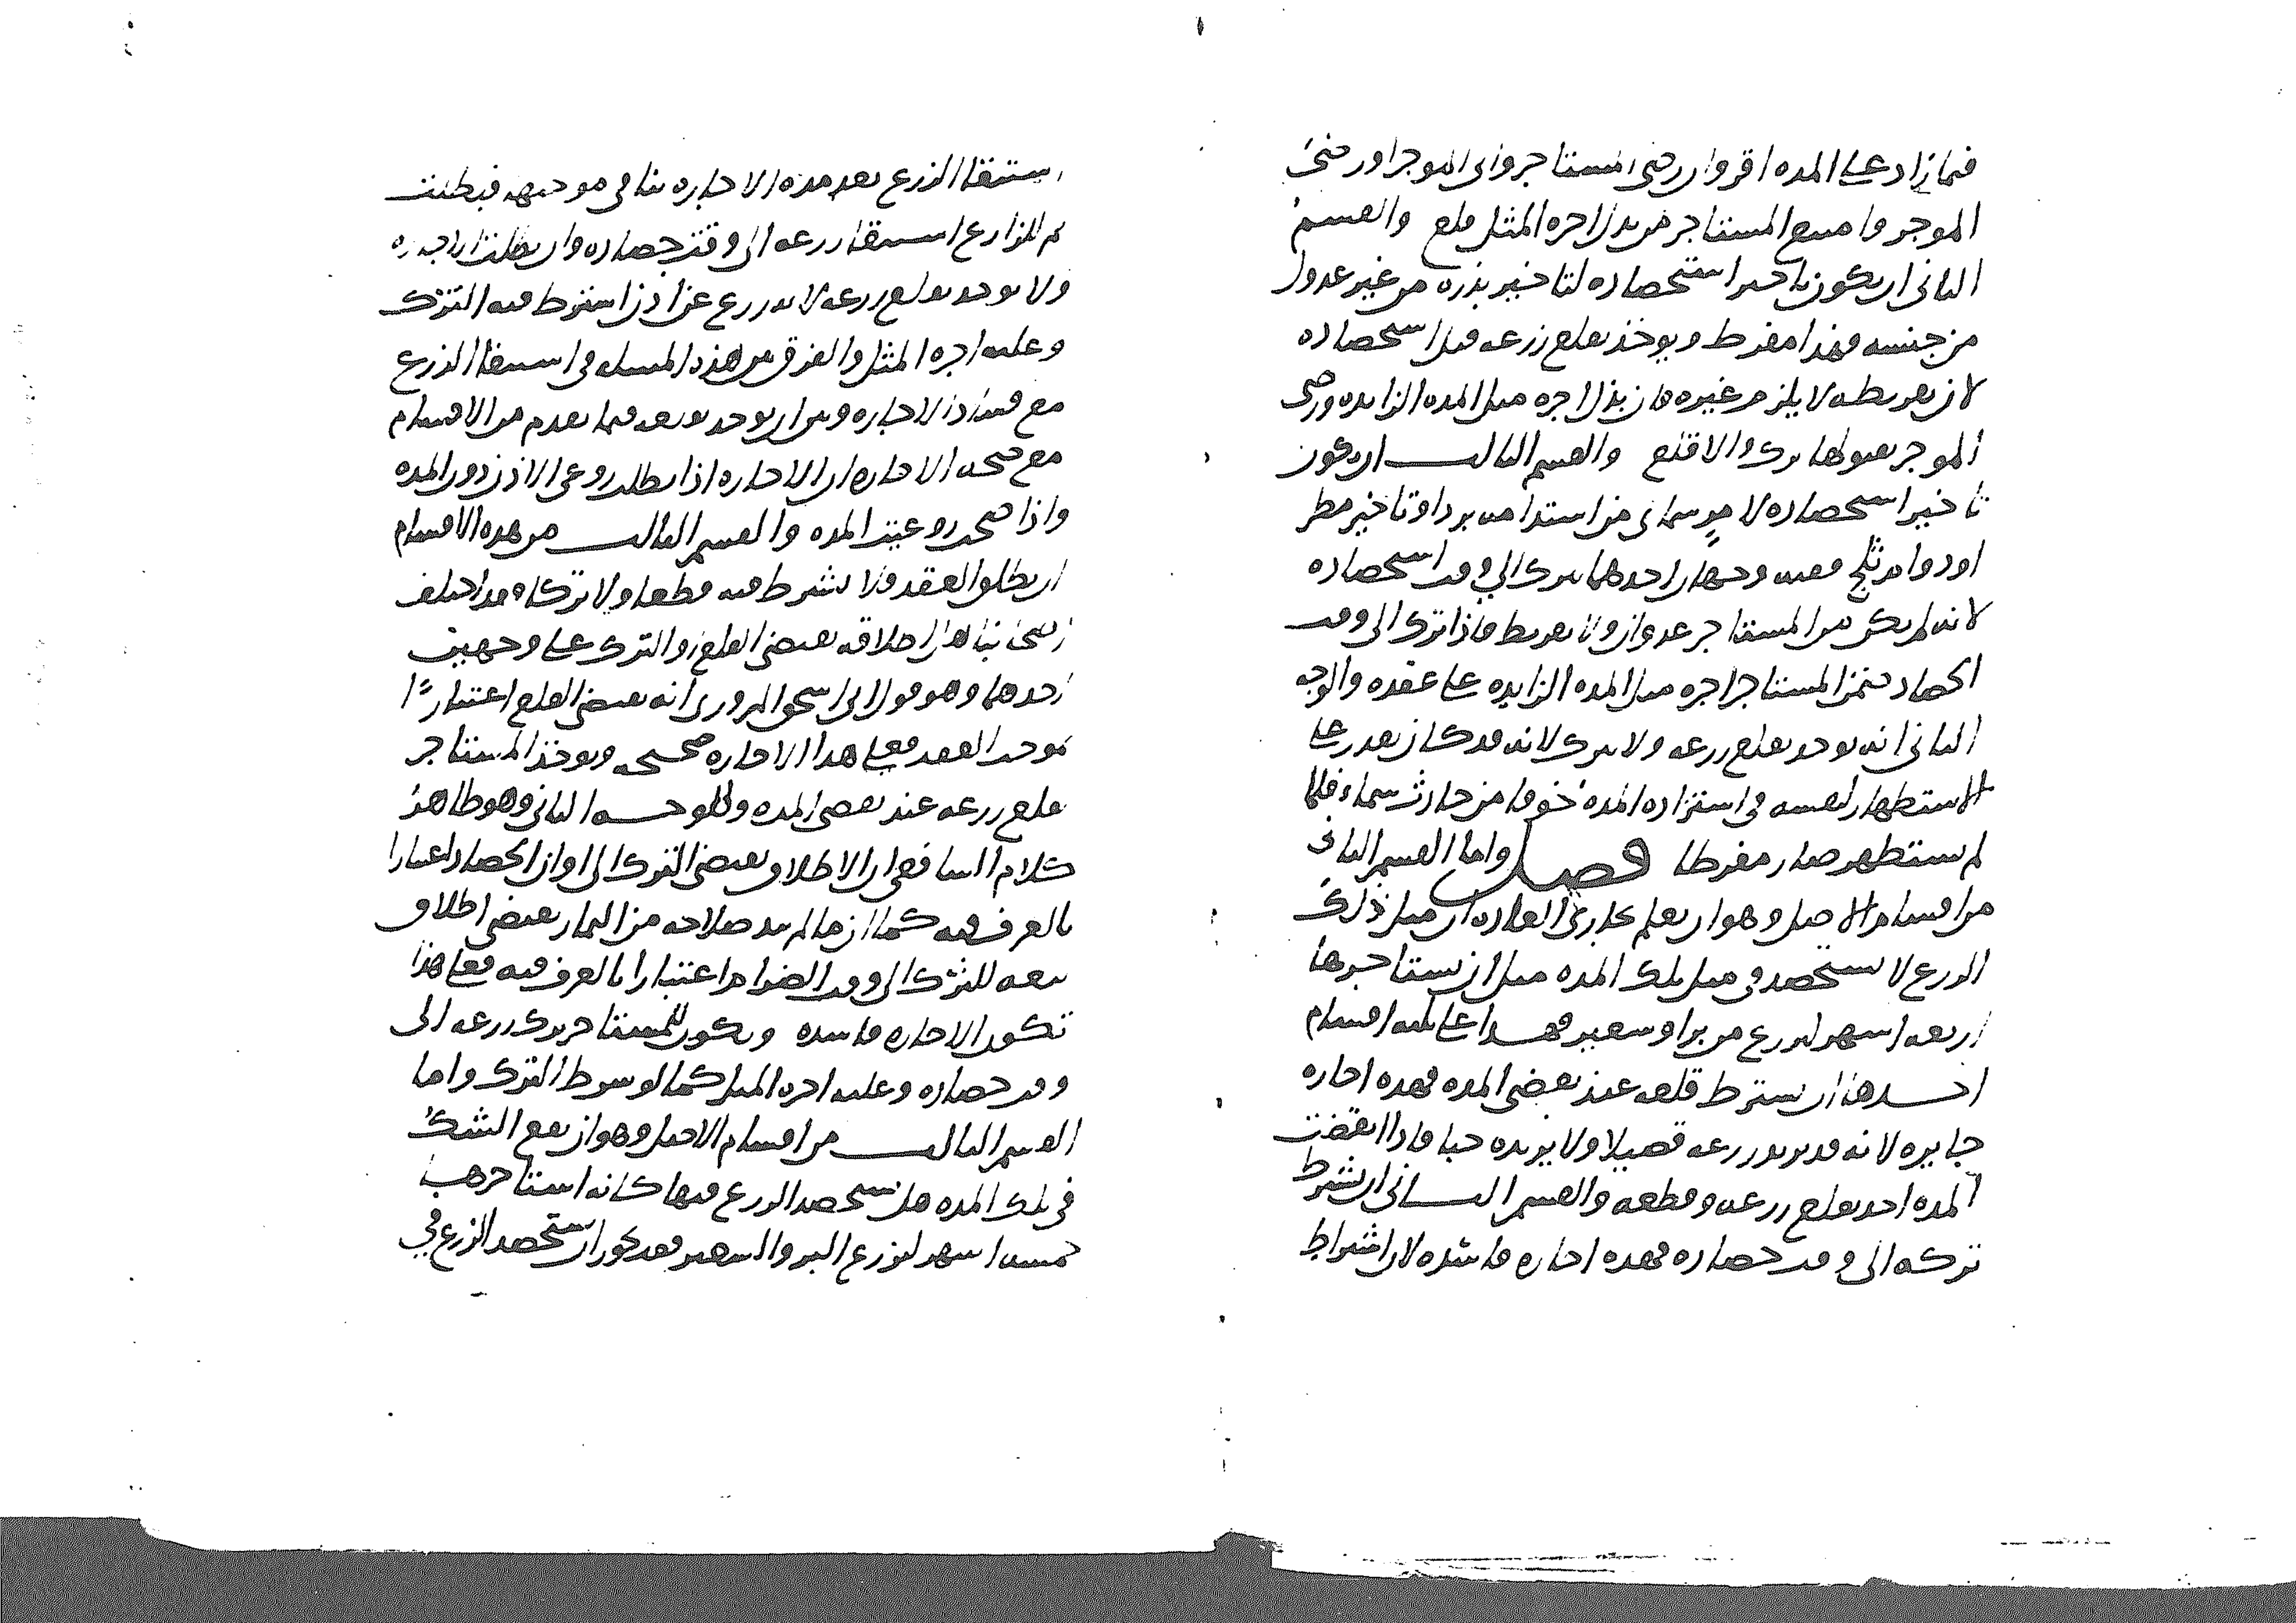 فما زاد على المده اقر وان رضى المستاجر وابى الموجر او رضى
الموجر وامتنع المستاجر من بدل اجره المثل قلع والقسم
الثانى ان يكون تاخير استحصاده لتاخير بذره من غير عدول
من جنسه فهذا مفرط ويوخذ بقلع زرعه قبل استحصاده
لان تفريطه لا يلزم غيره فان بذل اجره مثل المده الزايده ورضى
الموجر بقبولها ترك والا قلع والقسم الثالث ان يكون
تاخير استحصاده لامر سمائى من استدامه برد او تاخير مطر
او دوام ثلج ففيه وجهان احدهما يترك الى وقت استحصاده
لانه لم يكن من المستاجر عدوان ولا تفريط فاذا ترك الى وقت
الحصاد ضمن المستاجر اجره مثل المده الزايده على عقده والوجه
الثانى انه يوخذ بقلع زرعه ولا يترك لانه قد كان يقدر على
الاستظهار لنفسه فى استزاده المده خوفا من حادث سماء فلما
لم يستظهر صار مفرطا فصل واما القسم الثانى
من اقسام الاصل وهو ان يعلم بجارى العاده ان مثل ذلك
الزرع لا يستحصد فى مثل تلك المده مثل ان يستاجرها
اربعه اشهر لزرع من بر او شعير فهذا على ثلثه اقسام
احدها ان يشترط قلعه عند تقضى المده فهذه اجاره
جايزه لانه قد يريد زرعه قصيلا ولا يريده حبا فاذا انقضت
المده اخذ بقلع زرعه وقطعه والقسم الثانى ان يشترط
تركه الى وقت حصاده فهذه اجاره فاسده لان اشتراط
استبقا الزرع بعد مده الاجاره ينافى موجبها فبطلت
ثم للزارع استبقا زرعه الى وقت حصاده وان بطلت الاجاره
ولا يوخذ بقلع زرعه لانه زرع عن اذن اشترط فيه الترك
وعليه اجره المثل والفرق بين هذه المسله فى استبقا الزرع
مع فساد الاجاره وبين ان يوخذ بقلعه فيما تقدم من الاقسام
مع صحه الاجاره ان الاجاره اذا بطلت روعى الاذن دون المده
واذا صحت روعيت المده والقسم الثالث من هذه الاقسام
ان يطلقا العقد فلا يشترط فيه قطعا ولا تركا فقد اختلف
اصحابنا هل اطلاقه يقتضى القلع او الترك على وجهين
احدهما وهو قول ابى اسحق المروزى انه يقتضى القلع اعتبارا
بموجب العقد فعلى هذا الاجاره صحيحه ويوخذ المستاجر
بقلع زرعه عند تقضى المده والوجه الثانى وهو ظاهر
كلام الشافعى ان الاطلاق يقتضى الترك الى اوان الحصاد اعتبارا
بالعرف فيه كما ان ما لم يبد صلاحه من الثمار يقتضى اطلاق
بيعه للترك الى وقت الضرام اعتبارا بالعرف فيه فعلى هذا
تكون الاجاره فاسده ويكون للمستاجر ترك زرعه الى
وقت حصاده وعليه اجره المثل كما لو شرط الترك واما
القسم الثالث من اقسام الاصل وهو ان يقع الشك
فى تلك المده هل يستحصد الزرع فيها كانه استاجرها
خمسه اشهر لزرع البر والشعير فقد يجوز ان يستحصد الزرع فى